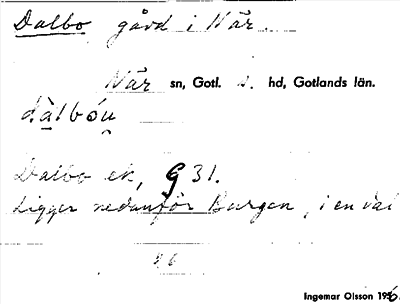 Dalbo gård i När.
När sn, Gotl. s. hd, Gotlands län.
dàlbóu̯
Dalbo ek, G 31.
Ligger nedanför Burgen, i en dal
Ingemar Olsson 1956